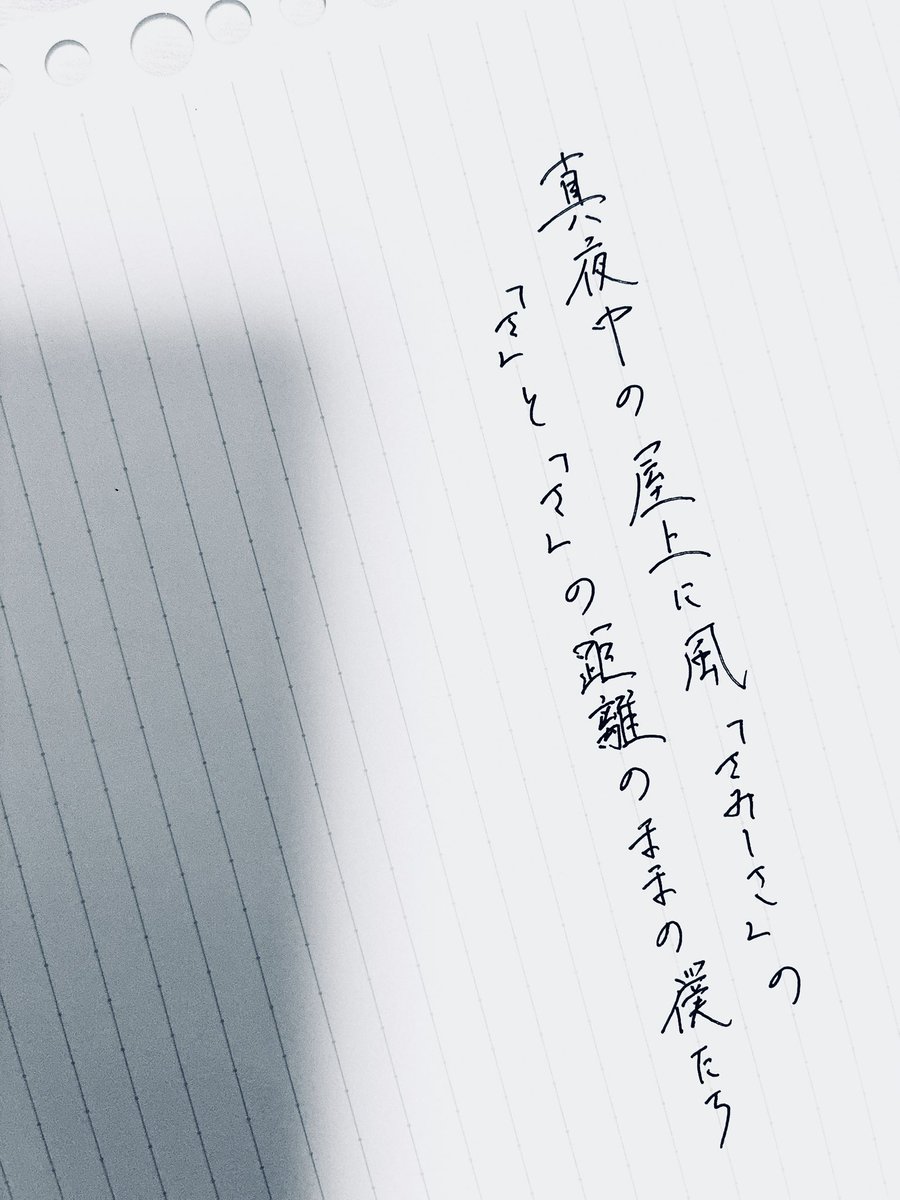 真夜中の屋上に風「さみーさ」の
「さ」と「さ」の距離のままの僕たち